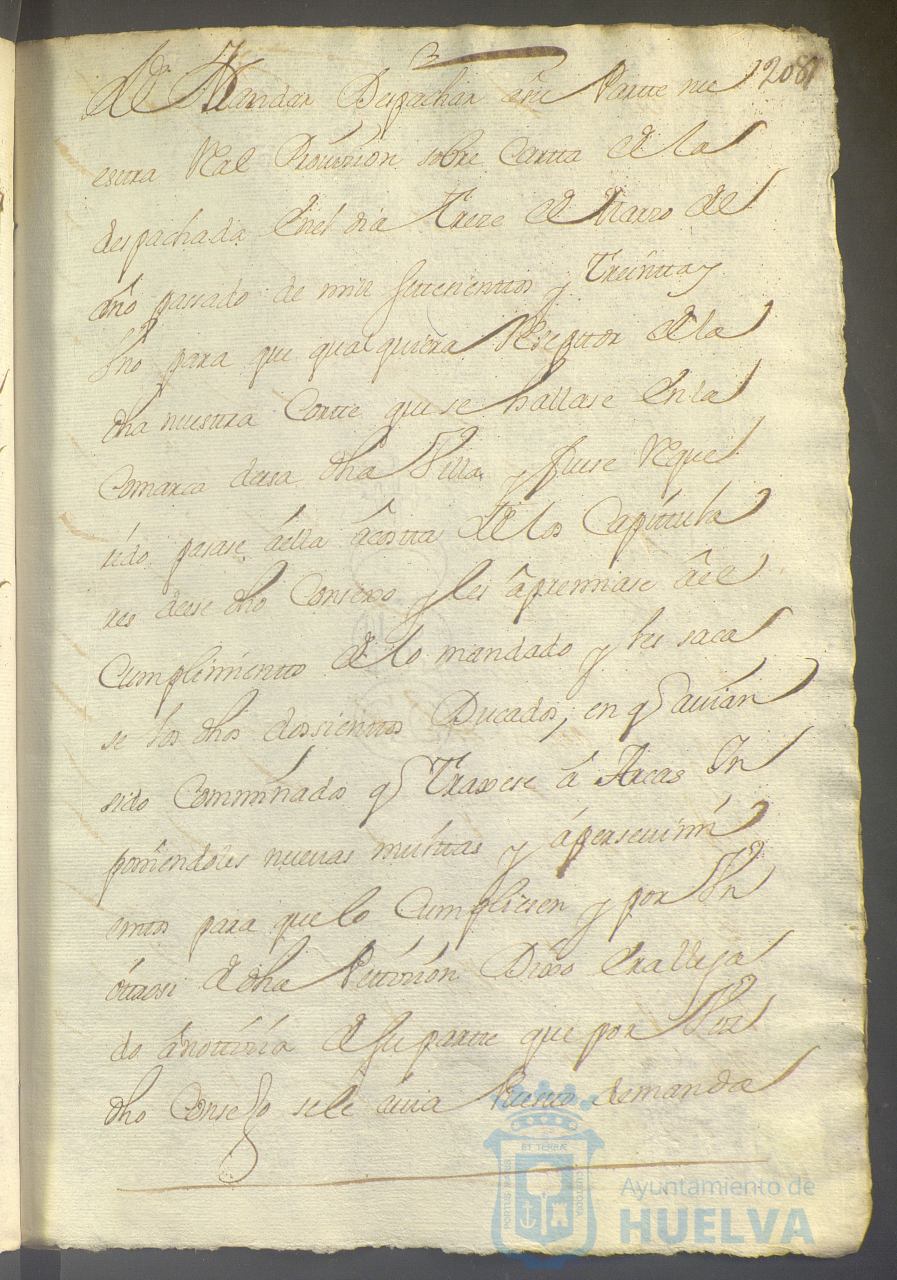 208
Mandar Despachar nue
estra Real Provision sobre Carta de la
despachada En el dia Treze de Marzo del
año passado de mill settecienttos y Treinta y
Uno para que qualquiera Rezeptor de la
dha nuestra Corte que se hallase En la
Comarca de esa dha Villa y fuese Reque
rido pasase a ella a costta de los Capittula
res de ese dho Consexo y les apremiase a el
Cumplimientto de lo mandado y les saca
se los dhos dossienttos Ducados, en q avian
sido Comminados q Traxese a Arcas Yn
poniendoles nuevas multtas y apersevimi
entos para que lo Cumpliesen y por Un
ottrosi de dha Pettizion Dixo Era llega
do a nottizia de su partte que por
dho Consejo se le avia Puesto demanda
BT TERRAE
PORTUS MARIS
CUSTODIA
Ayuntamiento de
HUELVA